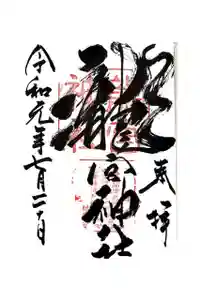 奉拝
龍宮神社
令和元年七月二十日